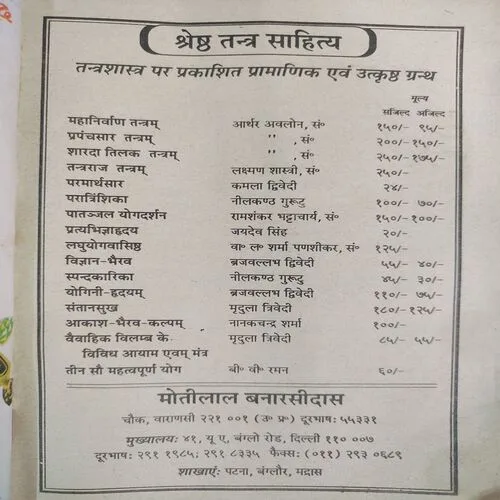 श्रेष्ठ तन्त्र साहित्य
तन्त्रशास्त्र पर प्रकाशित प्रामाणिक एवं उत्कृष्ठ ग्रन्थ
मूल्य
सजिल्द अजिल्द
महानिर्वाण तन्त्रम् आर्थर अवलोन, सं० १५०/- ९५/-
प्रपंचसार तन्त्रम् " , सं० २००/- १५०/-
शारदा तिलक तन्त्रम् " , सं० २५०/- १७५/-
तन्त्रराज तन्त्रम् लक्ष्मण शास्त्री, सं० २५०/-
परमार्थसार कमला द्विवेदी २४/-
परात्रिंशिका नीलकण्ठ गुरूटु १००/- ७०/-
पातञ्जल योगदर्शन रामशंकर भट्टाचार्य, सं० १५०/- १००/-
प्रत्यभिज्ञाहृदय जयदेव सिंह २०/-
लघुयोगवासिष्ठ वा० ल० शर्मा पणशीकर, सं० १२५/-
विज्ञान-भैरव ब्रजवल्लभ द्विवेदी ५५/- ४०/-
स्पन्दकारिका नीलकण्ठ गुरूटु ४५/- ३०/-
योगिनी-हृदयम् ब्रजवल्लभ द्विवेदी ११०/- ७५/-
संतानसुख मृदुला त्रिवेदी १८०/- १२५/-
आकाश-भैरव-कल्पम् नानकचन्द्र शर्मा १००/-
वैवाहिक विलम्ब के मृदुला त्रिवेदी ८५/- ५५/-
विविध आयाम एवम् मंत्र
तीन सौ महत्वपूर्ण योग बी० वी० रमन ६०/-
मोतीलाल बनारसीदास
चौक, वाराणसी २२१ ००१ (उ० प्र०) दूरभाष: ५५३३१
मुख्यालय: ४१, यू ए, बंग्लो रोड, दिल्ली ११० ००७
दूरभाष: २९१ १९८५; २९१ ८३३५ फैक्स: (०११) २९३ ०६८९
शाखाएं: पटना, बंग्लौर, मद्रास